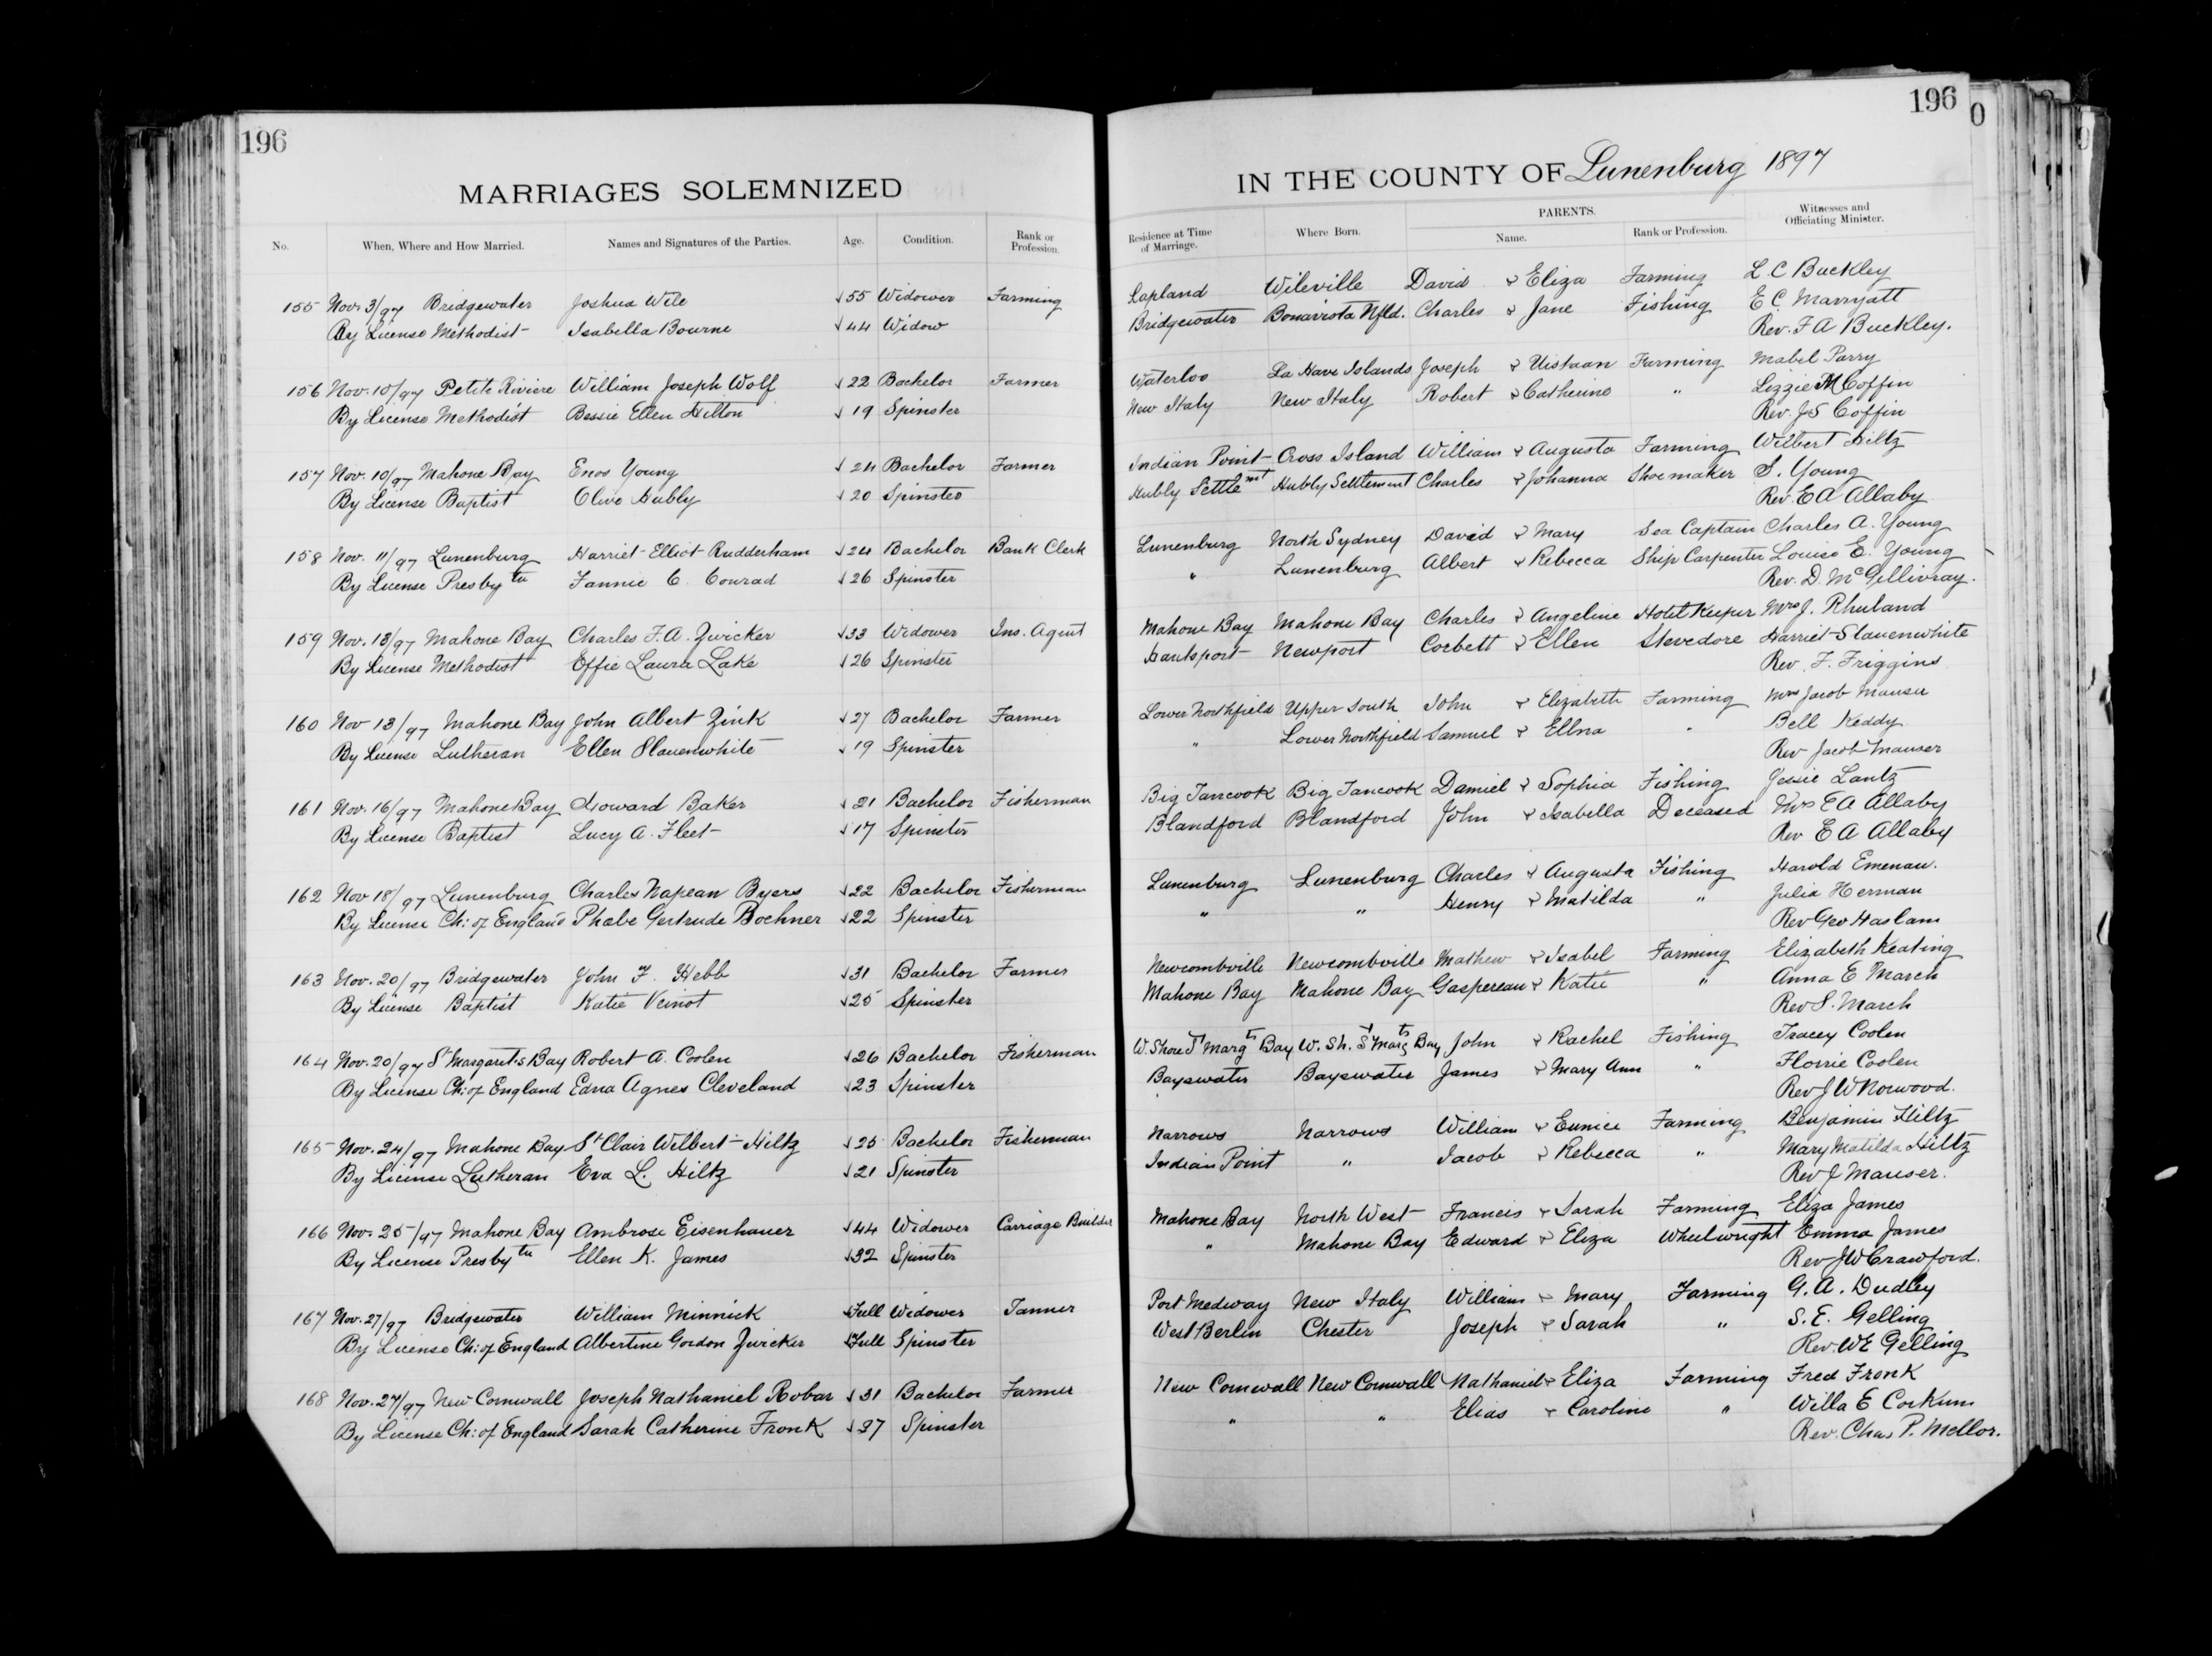 196
MARRIAGES SOLEMNIZED
No. When, Where and How Married. Names and Signatures of the Parties. Age. Condition. Rank or Profession.
155 Nov. 3/97 Bridgewater Joshua Wile 55 Widower Farming
By License Methodist Isabella Bourne 44 Widow
156 Nov. 10/97 Petite Riviere William Joseph Wolf 22 Bachelor Farmer
By License Methodist Bessie Ellen Hilton 19 Spinster
157 Nov. 10/97 Mahone Bay Enos Young 24 Bachelor Farmer
By License Baptist Olive Hubly 20 Spinster
158 Nov. 11/97 Lunenburg Harriet Elliot Rudderham 24 Bachelor Bank Clerk
By License Presbytn Fannie C. Conrad 26 Spinster
159 Nov. 13/97 Mahone Bay Charles F. A. Zwicker 33 Widower Ins. Agent
By License Methodist Effie Laura Lake 26 Spinster
160 Nov 13/97 Mahone Bay John Albert Zink 27 Bachelor Farmer
By License Lutheran Ellen Slauenwhite 19 Spinster
161 Nov. 16/97 Mahone Bay Howard Baker 21 Bachelor Fisherman
By License Baptist Lucy A. Fleet 17 Spinster
162 Nov 18/97 Lunenburg Charles Napean Byers 22 Bachelor Fisherman
By License Ch: of England Phabe Gertrude Bochner 22 Spinster
163 Nov. 20/97 Bridgewater John F. Hebb 31 Bachelor Farmer
By License Baptist Katie Veinot 25 Spinster
164 Nov. 20/97 St Margarets Bay Robert A. Coolen 26 Bachelor Fisherman
By License Ch: of England Edna Agnes Cleveland 23 Spinster
165 Nov. 24/97 Mahone Bay St Clair Wilbert Hiltz 25 Bachelor Fisherman
By License Lutheran Eva L. Hiltz 21 Spinster
166 Nov. 25/97 Mahone Bay Ambrose Eisenhauer 44 Widower Carriage Builder
By License Presbytn Ellen K. James 32 Spinster
167 Nov. 27/97 Bridgewater William Minnick Full Widower Tanner
By License Ch: of England Albertine Gordon Zwicker Full Spinster
168 Nov. 27/97 New Cornwall Joseph Nathaniel Robar 31 Bachelor Farmer
By License Ch: of England Sarah Catherine Fronk 37 Spinster
196
0
IN THE COUNTY OF Lunenburg 1897
Residence at Time of Marriage. Where Born. PARENTS. Name. Rank or Profession. Witnesses and Officiating Minister.
Lapland Wileville David & Eliza Farming L. C Buckley
Bridgewater Bonavista Nfld. Charles & Jane Fishing E. C. Marryatt
Rev. F A Buckley.
Waterloo La Have Islands Joseph & Farming Mabel Parry
New Italy New Italy Robert & Catherine " Lizzie M Coffin
Rev. J S Coffin
Indian Point Cross Island William & Augusta Farming Wilbert Hiltz
Hubly Settlemt Hubly Settlement Charles & Johanna Shoemaker S. Young
Rev. E A Allaby
Lunenburg North Sydney David & Mary Sea Captain Charles A. Young
" Lunenburg Albert & Rebecca Ship Carpenter Louise E. Young
Rev. D. McGillivray.
Mahone Bay Mahone Bay Charles & Angeline Hotel Keeper Mrs J. Rhuland
Hantsport Newport Corbett & Ellen Stevedore Harriet Slauenwhite
Rev. F. Friggins
Lower Northfield Upper South John & Elizabeth Farming Mrs Jacob Mauser
" Lower Northfield Samuel & Ellna " Bell Keddy
Rev Jacob Mauser
Big Tancook Big Tancook Daniel & Sophia Fishing Jessie Lantz
Blandford Blandford John & Isabella Deceased Mrs E A Allaby
Rev E A Allaby
Lunenburg Lunenburg Charles & Augusta Fishing Harold Emenau.
" " Henry & Matilda " Julia Herman
Rev Geo Haslam
Newcombville Newcombville Mathew & Isabel Farming Elizabeth Keating
Mahone Bay Mahone Bay Gaspereau & Katie " Anna E March
Rev S. March
W. Shore St Margts Bay W. Sh. St Margts Bay John & Rachel Fishing Tracey Coolen
Bayswater Bayswater James & Mary Ann " Florrie Coolen
Rev J W Norwood.
Narrows Narrows William & Eunice Farming Benjamin Hiltz
Indian Point " Jacob & Rebecca " Mary Matilda Hiltz
Rev J Mauser.
Mahone Bay North West Francis & Sarah Farming Eliza James
" Mahone Bay Edward & Eliza Wheelwright Emma James
Rev J W Crawford.
Port Medway New Italy William & Mary Farming G. A. Dudley
West Berlin Chester Joseph & Sarah " S. E. Gelling
Rev. W E Gelling
New Cornwall New Cornwall Nathaniel & Eliza Farming Fred Fronk
" " Elias & Caroline " Willa E Corkum
Rev. Chas P. Mellor.